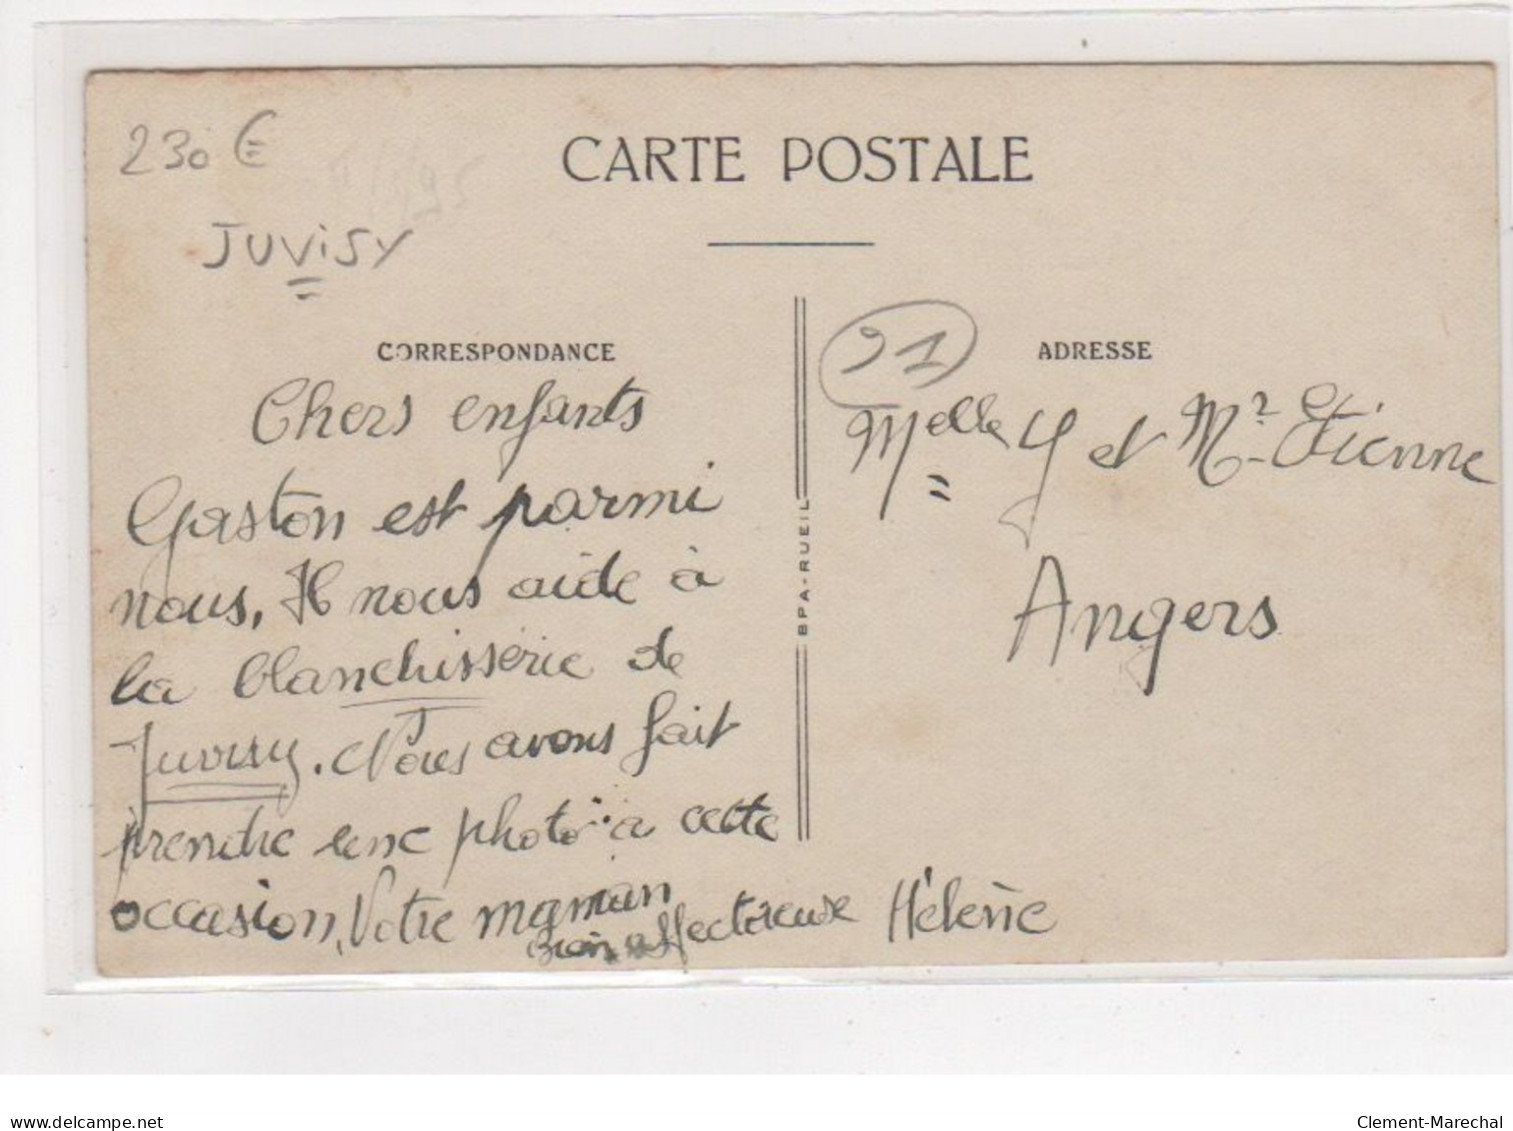 230 €
CARTE POSTALE
JUVISY
CORRESPONDANCE
91
ADRESSE
Chers enfants
Gaston est parmi
nous, Il nous aide à
la blanchisserie de
Juvisy. Nous avons fait
prendre une photo à cette
occasion, Votre maman
bien affectueuse Hélène
Melle Y et Mr Étienne
Angers
BPA-RUEIL
delcampe.net
Clement-Marechal